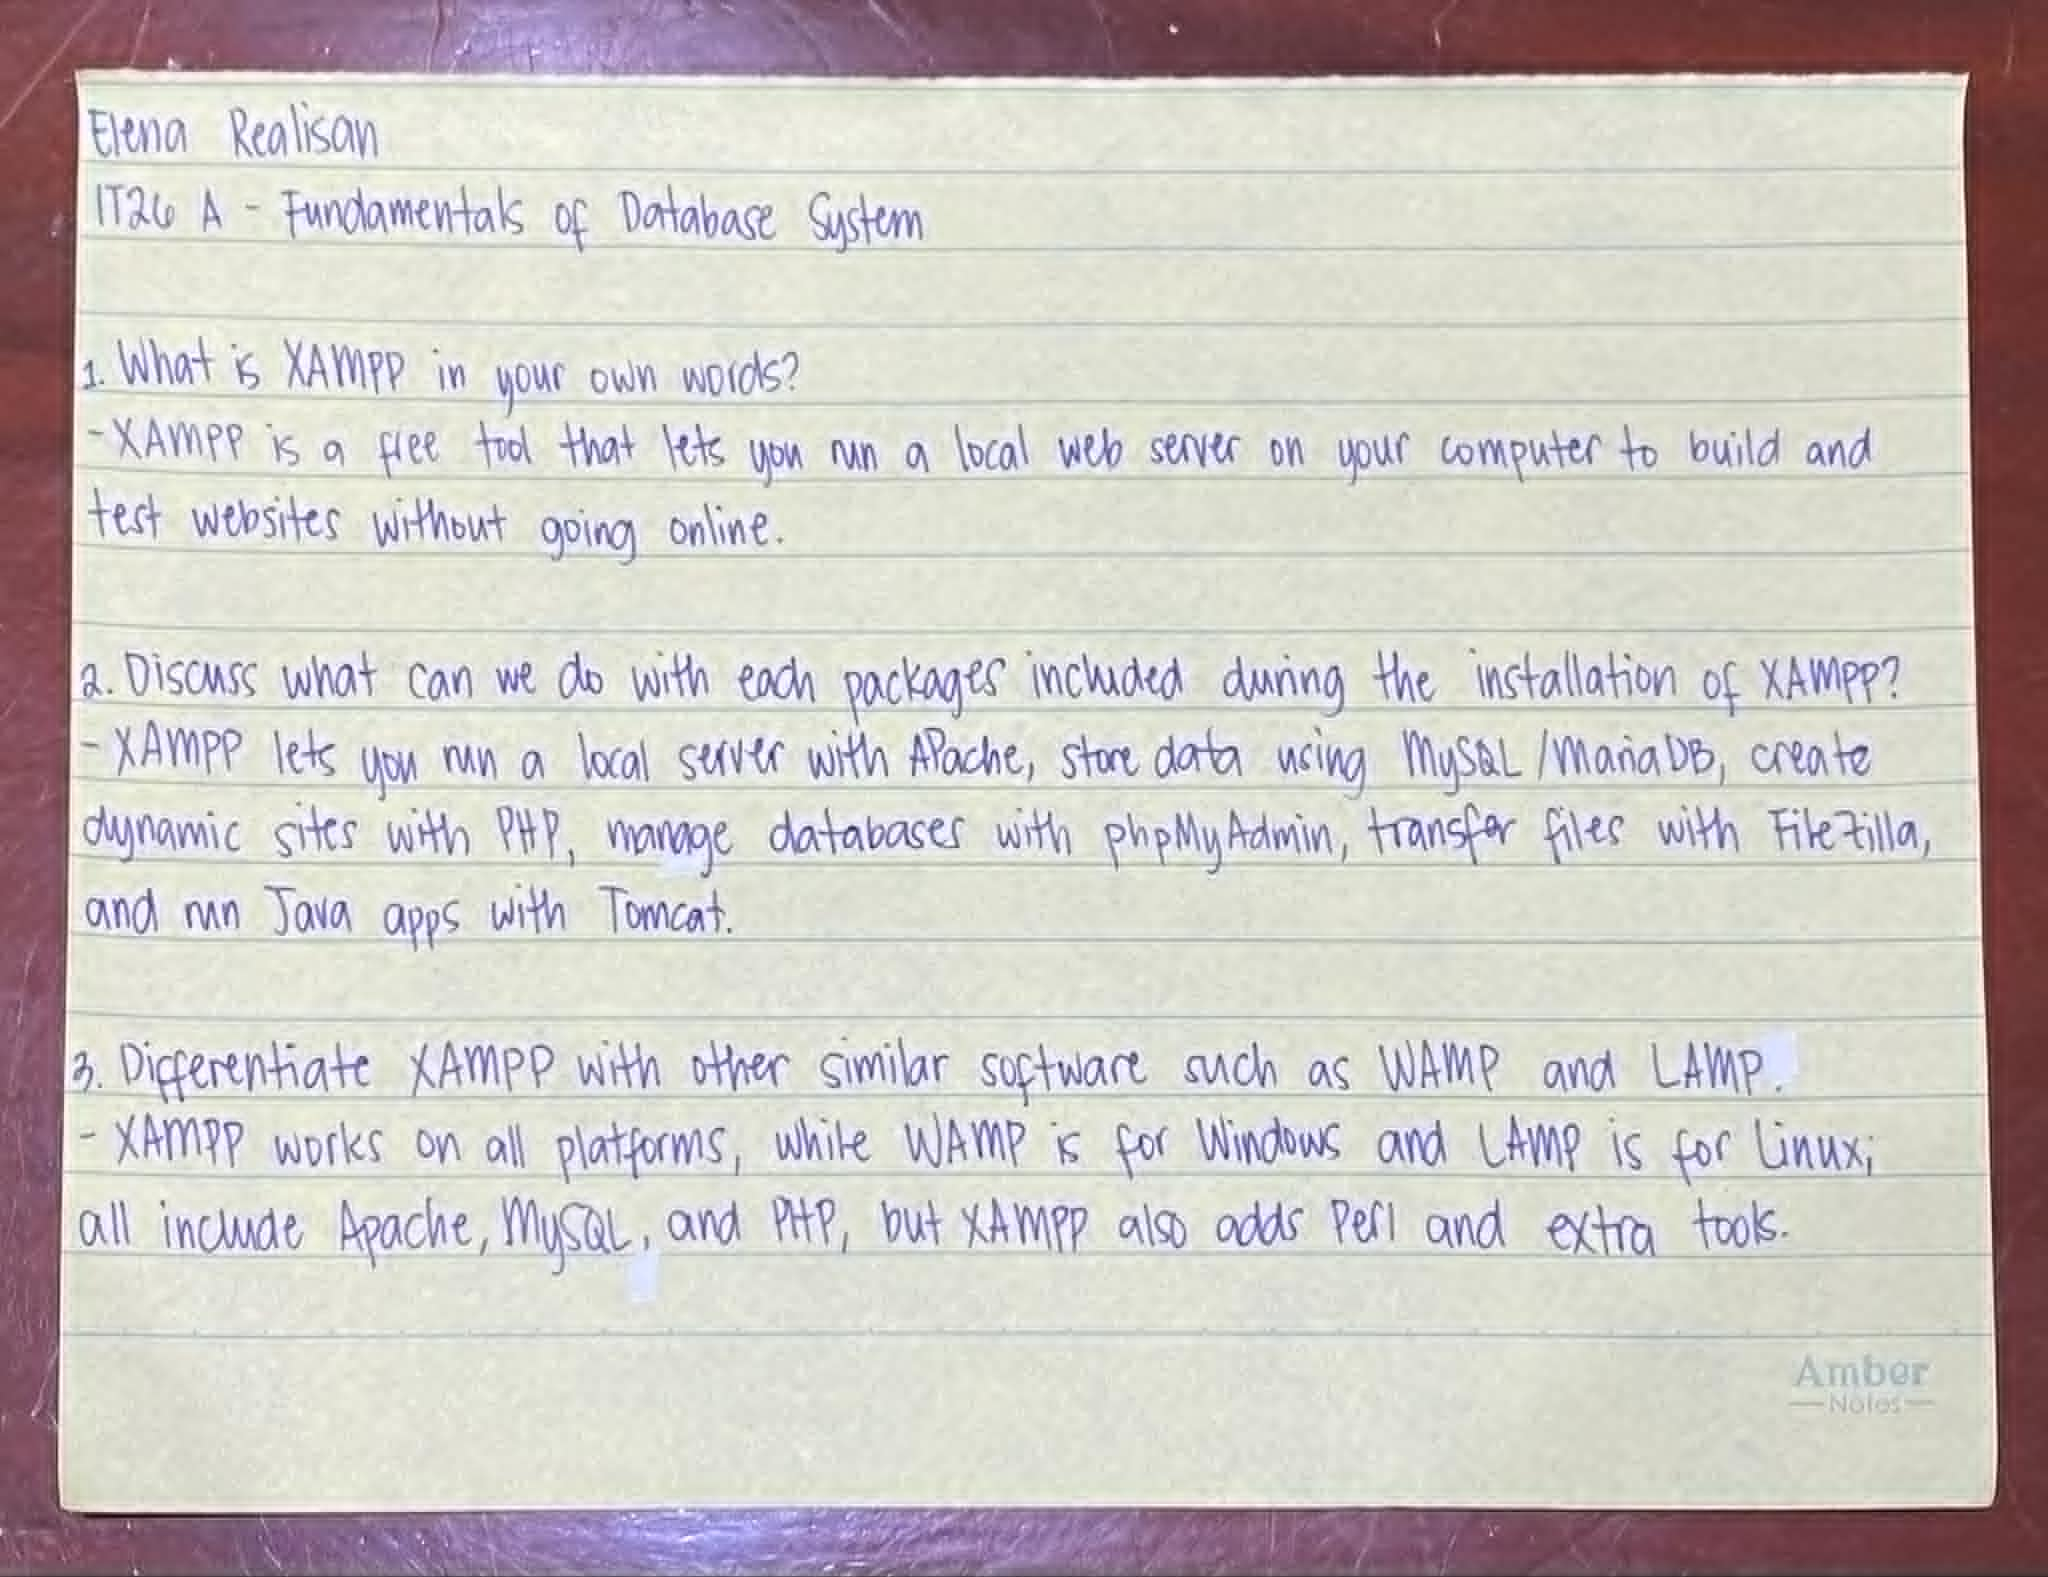 Elena Realisan
IT26 A - Fundamentals of Database System
1. What is XAMPP in your own words?
- XAMPP is a free tool that lets you run a local web server on your computer to build and
test websites without going online.
2. Discuss what can we do with each packages included during the installation of XAMPP?
- XAMPP lets you run a local server with APache, store data using MySQL / MariaDB, create
dynamic sites with PHP, manage databases with phpMyAdmin, transfer files with FileZilla,
and run Java apps with Tomcat.
3. Differentiate XAMPP with other similar software such as WAMP and LAMP.
- XAMPP works on all platforms, while WAMP is for Windows and LAMP is for Linux;
all include Apache, MySQL, and PHP, but XAMPP also adds Perl and extra tools.
Amber
Notes